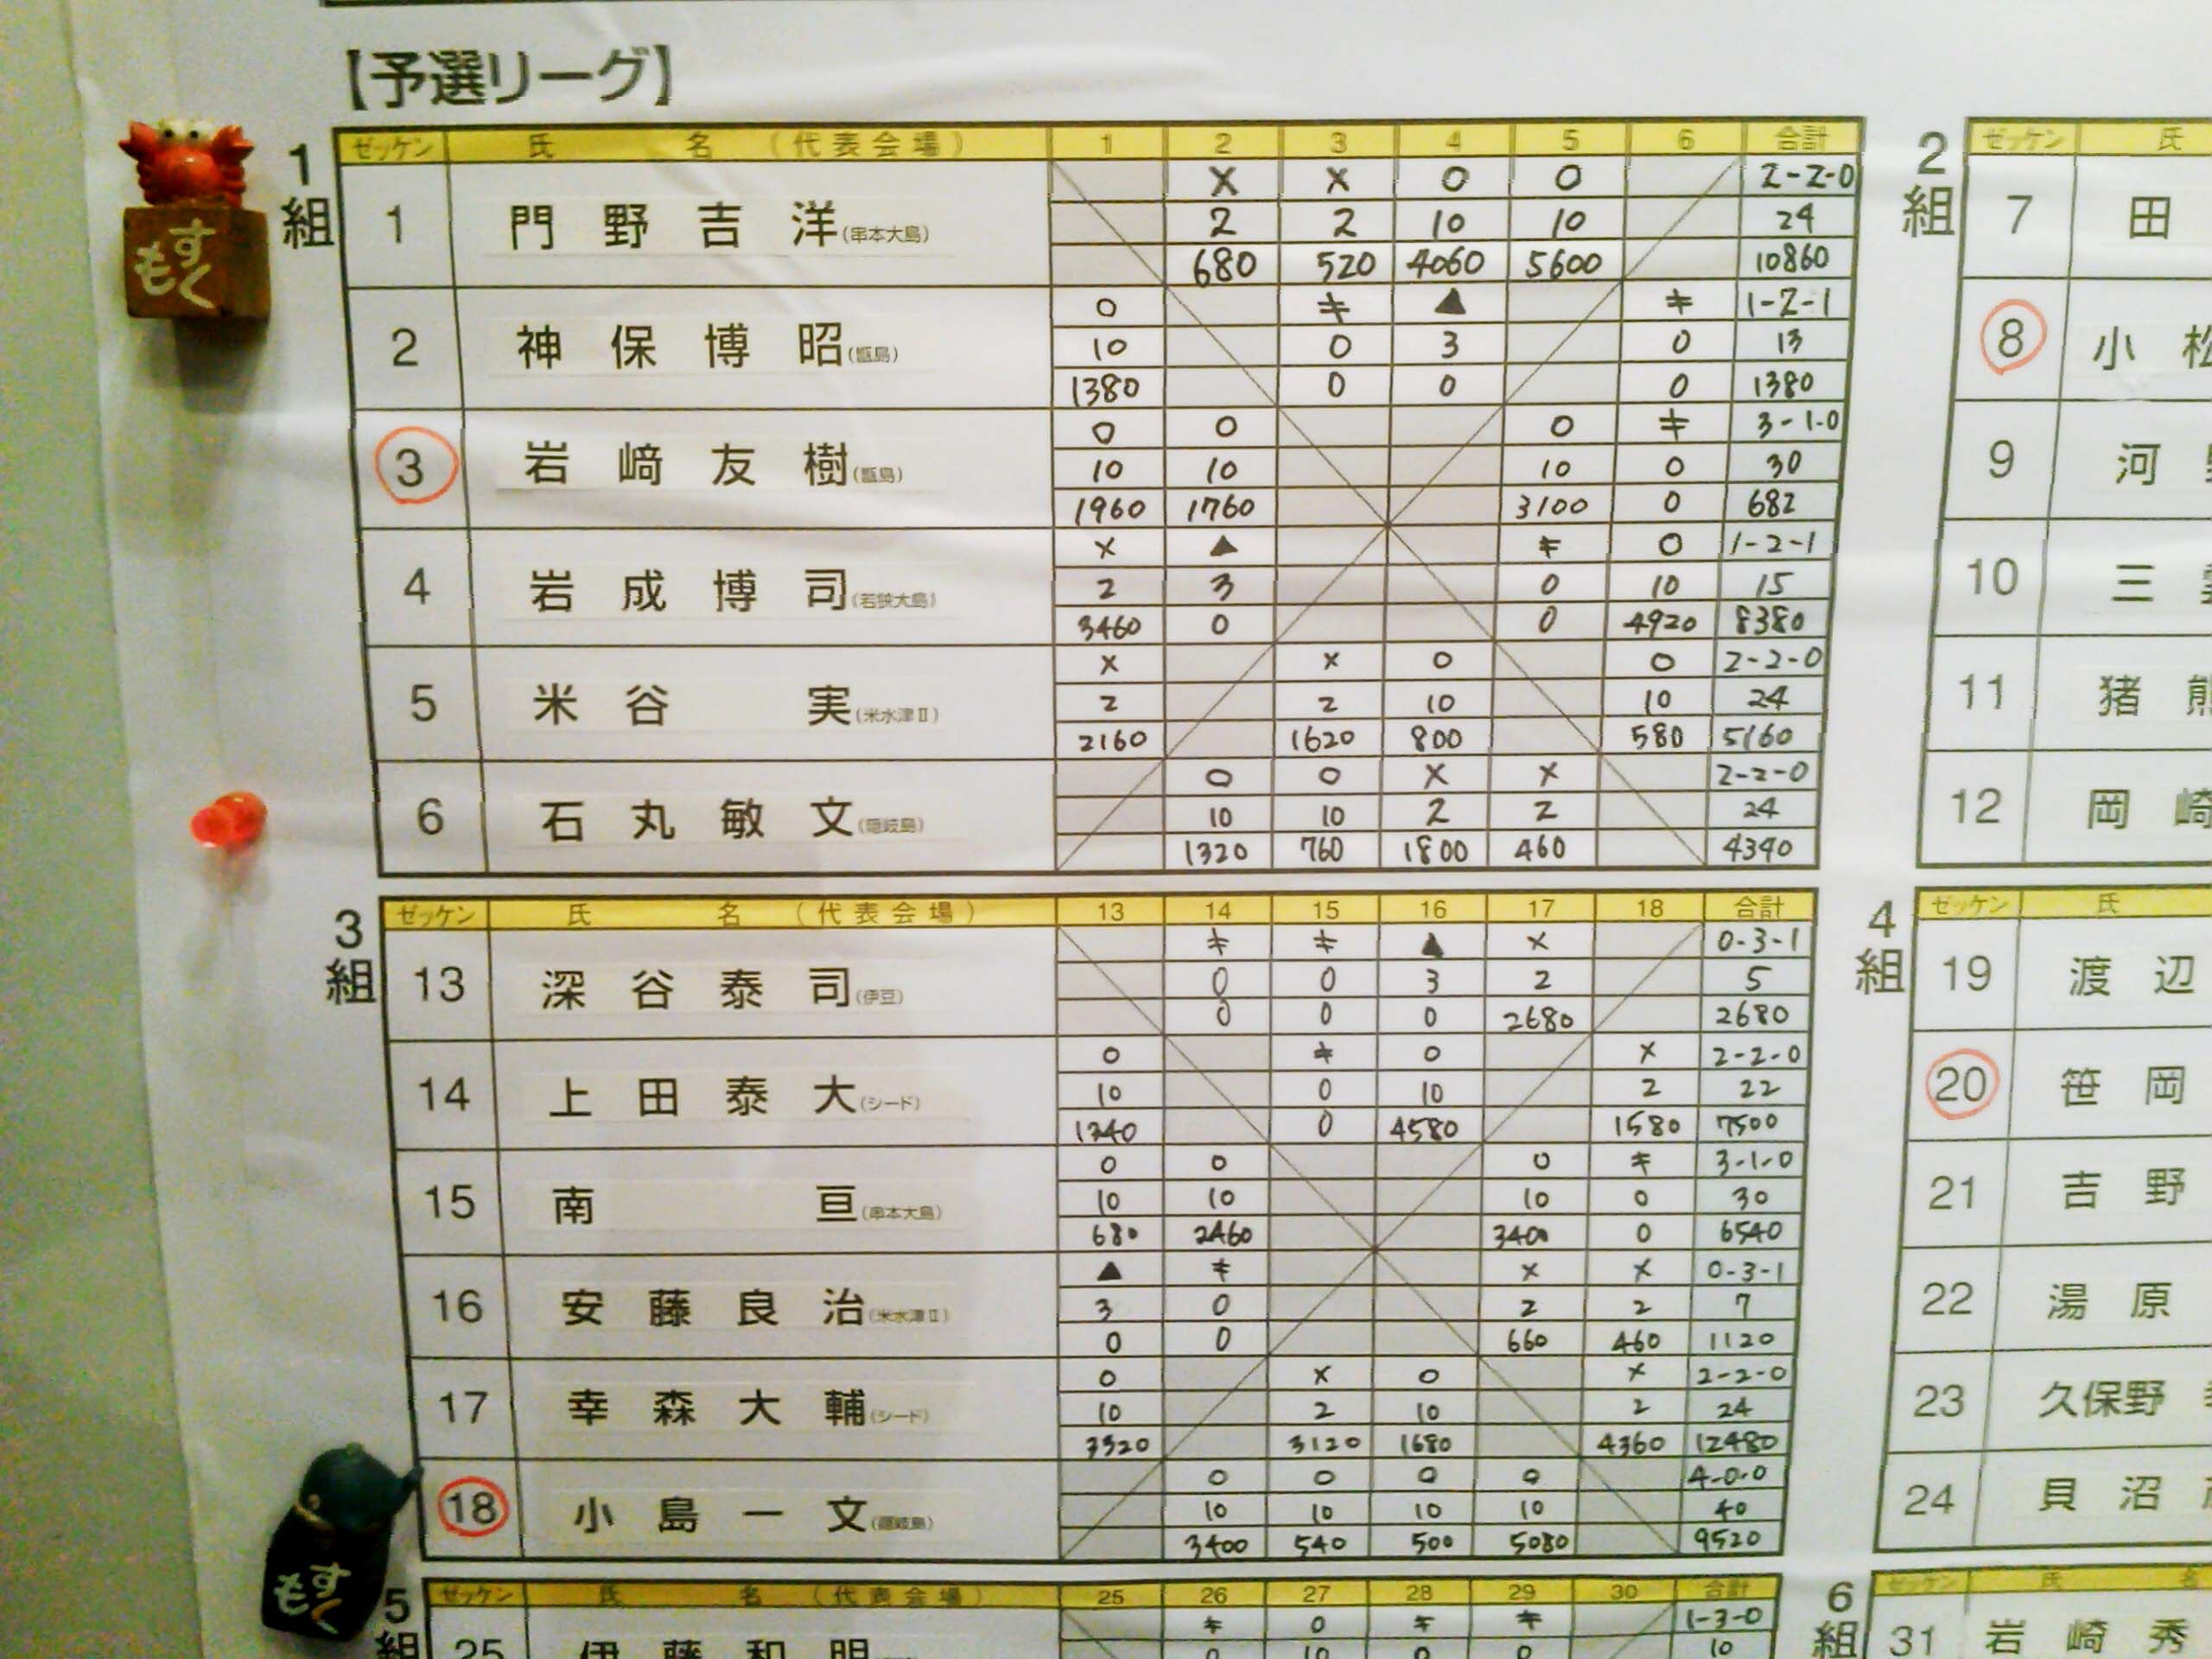 【予選リーグ】
1組
ゼッケン 氏 名 (代表会場) 1 2 3 4 5 6 合計
× × ○ ○ 2-2-0
1 門野吉洋(串本大島) 2 2 10 10 24
680 520 4060 5600 10860
○ キ ▲ キ 1-2-1
2 神保博昭(甑島) 10 0 3 0 13
1380 0 0 0 1380
○ ○ ○ キ 3-1-0
3 岩﨑友樹(甑島) 10 10 10 0 30
1960 1760 3100 0 682
× ▲ キ ○ 1-2-1
4 岩成博司(若狭大島) 2 3 0 10 15
3460 0 0 4920 8380
× × ○ ○ 2-2-0
5 米谷実(米水津Ⅱ) 2 2 10 10 24
2160 1620 800 580 5160
○ ○ × × 2-2-0
6 石丸敏文(隠岐島) 10 10 2 2 24
1320 760 1800 460 4340
2組
ゼッケン 氏
7 田
8 小松
9 河
10 三
11 猪熊
12 岡崎
3組
ゼッケン 氏 名 (代表会場) 13 14 15 16 17 18 合計
キ キ ▲ × 0-3-1
13 深谷泰司(伊豆) 0 0 3 2 5
0 0 0 2680 2680
○ キ ○ × 2-2-0
14 上田泰大(シード) 10 0 10 2 22
1340 0 4580 1580 7500
○ ○ ○ キ 3-1-0
15 南亘(串本大島) 10 10 10 0 30
680 2460 3400 0 6540
▲ キ × × 0-3-1
16 安藤良治(米水津Ⅱ) 3 0 2 2 7
0 0 660 460 1120
○ × ○ × 2-2-0
17 幸森大輔(シード) 10 2 10 2 24
3320 3120 1680 4360 12480
○ ○ ○ ○ 4-0-0
18 小島一文(隠岐島) 10 10 10 10 40
3400 540 500 5080 9520
4組
ゼッケン 氏
19 渡辺
20 笹岡
21 吉野
22 湯原
23 久保野
24 貝沼
5組
ゼッケン 氏 名 (代表会場) 25 26 27 28 29 30 合計
キ ○ キ キ 1-3-0
25 伊藤和明 0 10 0 0 10
6組
ゼッケン 氏 名
31 岩崎秀
もすく
もすく